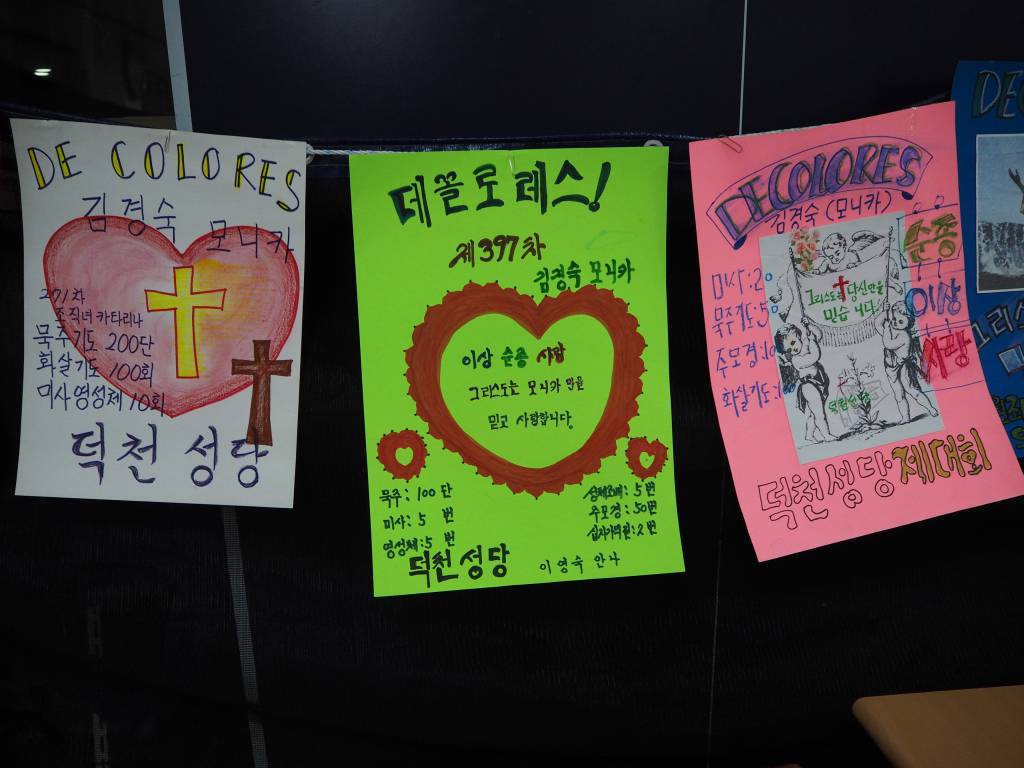 DE COLORES
김경숙 모니카
271차
조직녀 카타리나
묵주기도 200단
화살기도 100회
미사 영성체 10회
덕천 성당
데꼴로레스!
제397차
김경숙 모니카
이상 순종 사랑
그리스도는 모니카 만을
믿고 사랑합니다.
묵주: 100단
미사: 5 번
영성체: 5 번
성체조배: 5번
주모경: 50번
십자가의길: 2번
덕천성당
이영숙 안나
DECOLORES
김경숙 (모니카)
순종
이상
사랑
미사: 20
묵주기도: 50
주모경: 10
화살기도:
그리스도 당신만을
믿습니다.
덕천성당 제대회
DE
그리스